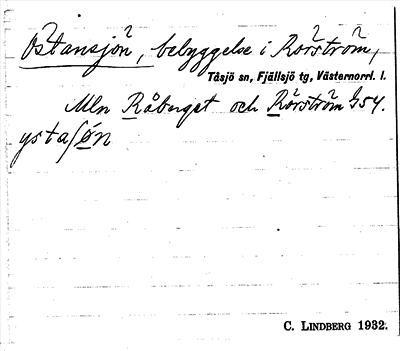 Östansjön, bebyggelse i Rörström,
Tåsjö sn, Fjällsjö tg, Västernorrl. l.
Mln Råberget och Rörström G54.
ystaʃǿn
C. LINDBERG 1932.